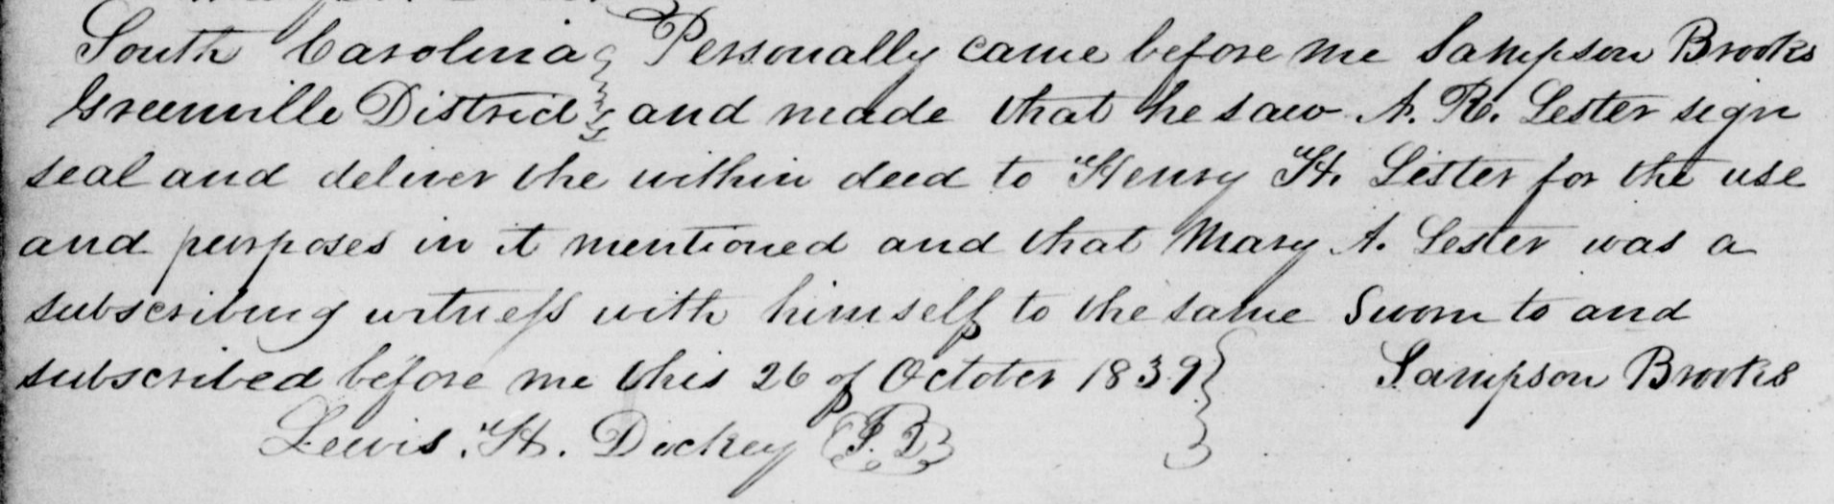 South Carolina } Personally came before me Sampson Brooks
Greenville District } and made that he saw A. R. Lester sign
seal and deliver the within deed to Henry H. Lester for the use
and purposes in it mentioned and that Mary A. Lester was a
subscribing witness with himself to the same Sworn to and
subscribed before me this 26 of October 1839 } Sampson Brooks
Lewis. H. Dickey